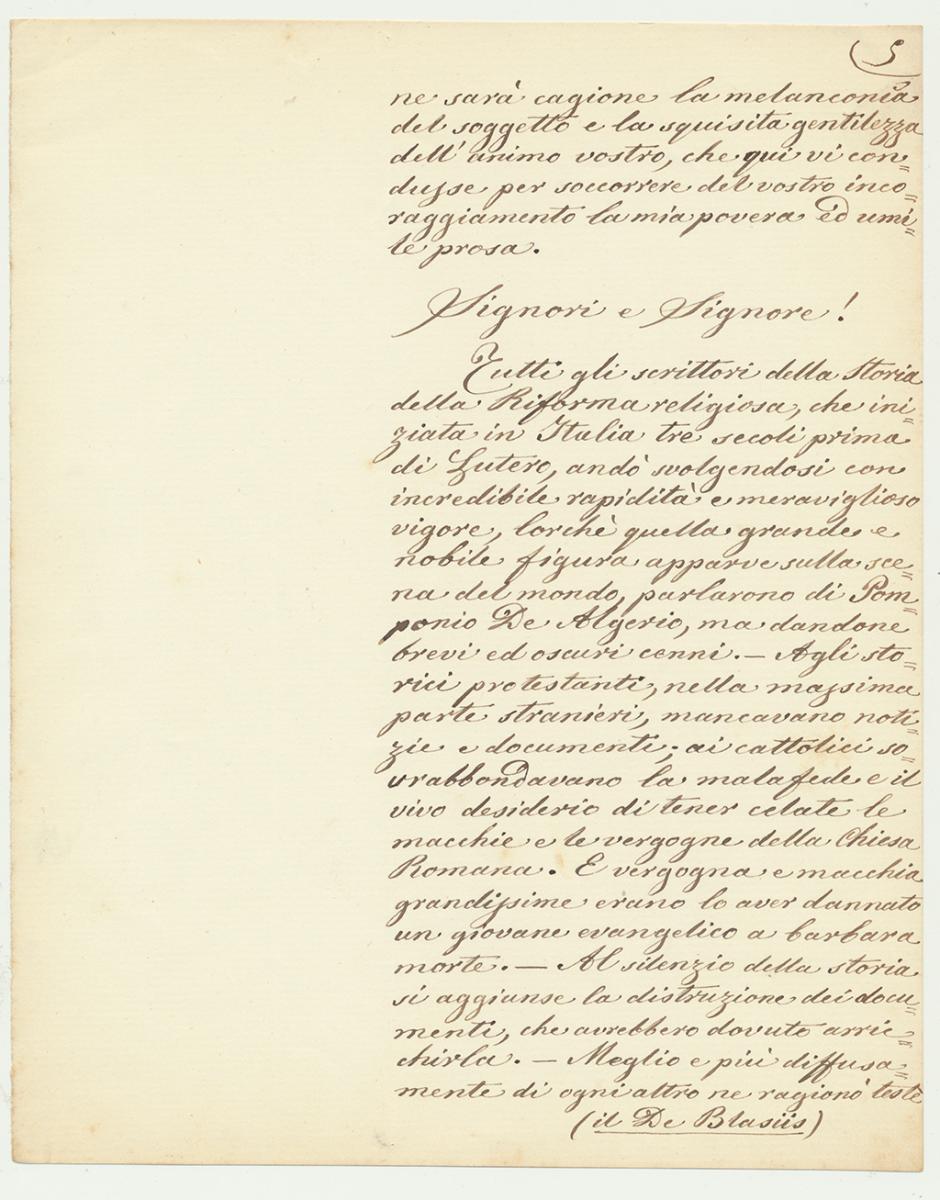 5
ne sarà cagione la melanconia
del soggetto e la squisita gentilezza
dell'animo vostro, che qui vi con=
dusse per soccorrere del vostro inco=
raggiamento la mia povera ed umi=
le prosa.
Signori e Signore!
Tutti gli scrittori della Storia
della Riforma religiosa, che ini=
ziata in Italia tre secoli prima
di Lutero, andò svolgendosi con
incredibile rapidità e meraviglioso
vigore, lorchè quella grande e
nobile figura apparve sulla sce=
na del mondo, parlarono di Pom=
ponio De Algerio, ma dandone
brevi ed oscuri cenni. — Agli sto=
rici protestanti, nella massima
parte stranieri, mancavano noti=
zie e documenti; ai cattolici so=
vrabbondavano la malafede e il
vivo desiderio di tener celate le
macchie e le vergogne della Chiesa
Romana. E vergogna e macchia
grandissime erano lo aver dannato
un giovane evangelico a barbara
morte. — Al silenzio della storia
si aggiunse la distruzione dei docu=
menti, che avrebbero dovuto arric=
chirla. — Meglio e più diffusa=
mente di ogni altro ne ragionò testè
(il De Blasiis)